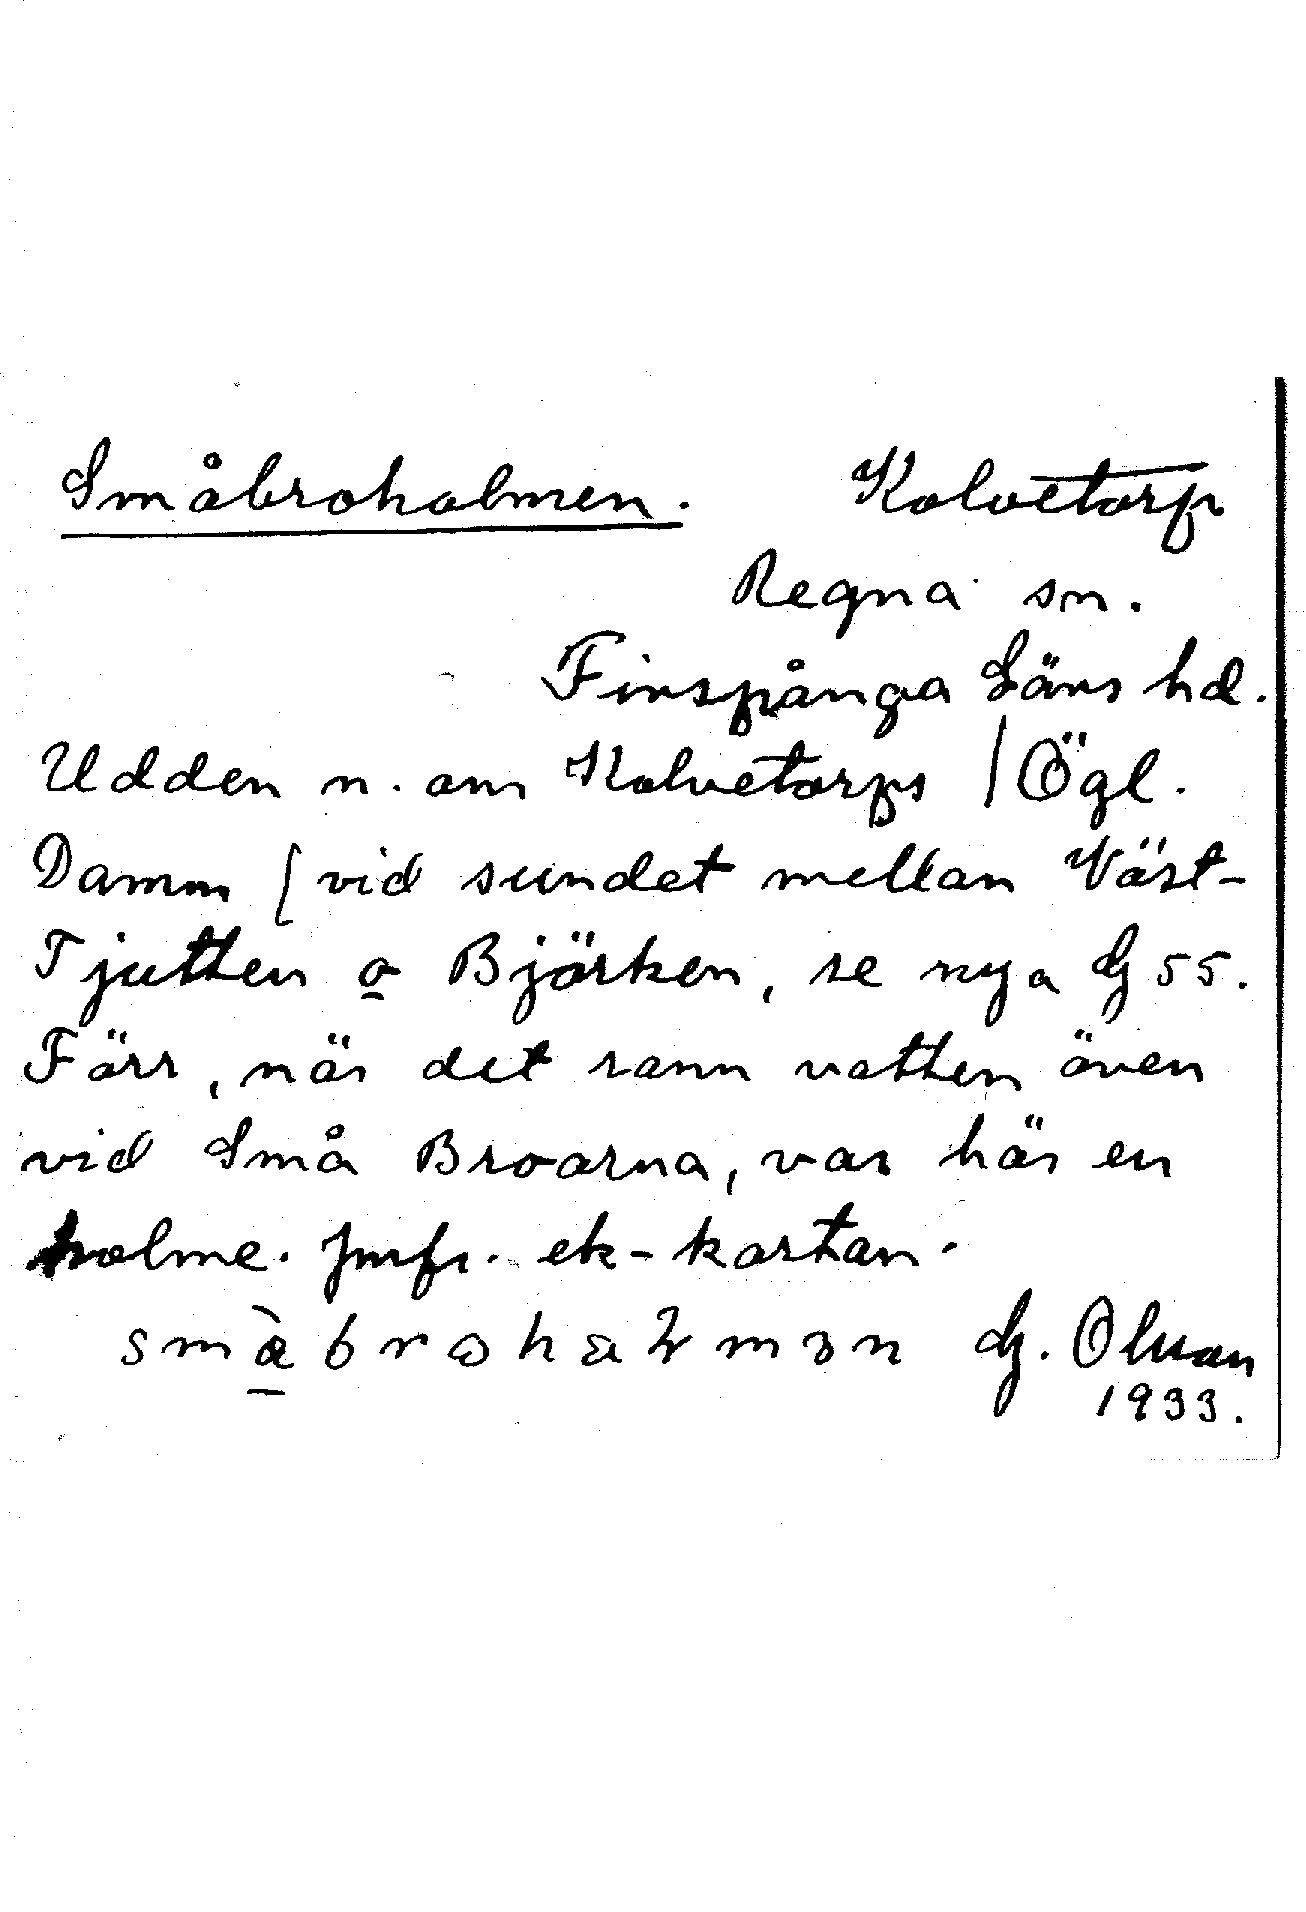 Småbroholmen. Kolvetorp
Regna sn.
Finspånga Läns hd.
Udden n. om Kolvetorps / Ögl.
Damm [ vid sundet mellan Väst-
Tjutten o Björken, se nya G 55.
Förr, när det rann vatten även
vid Små Broarna, var här en
holme. Jmfr. ek-kartan.
G. Olson
1933.